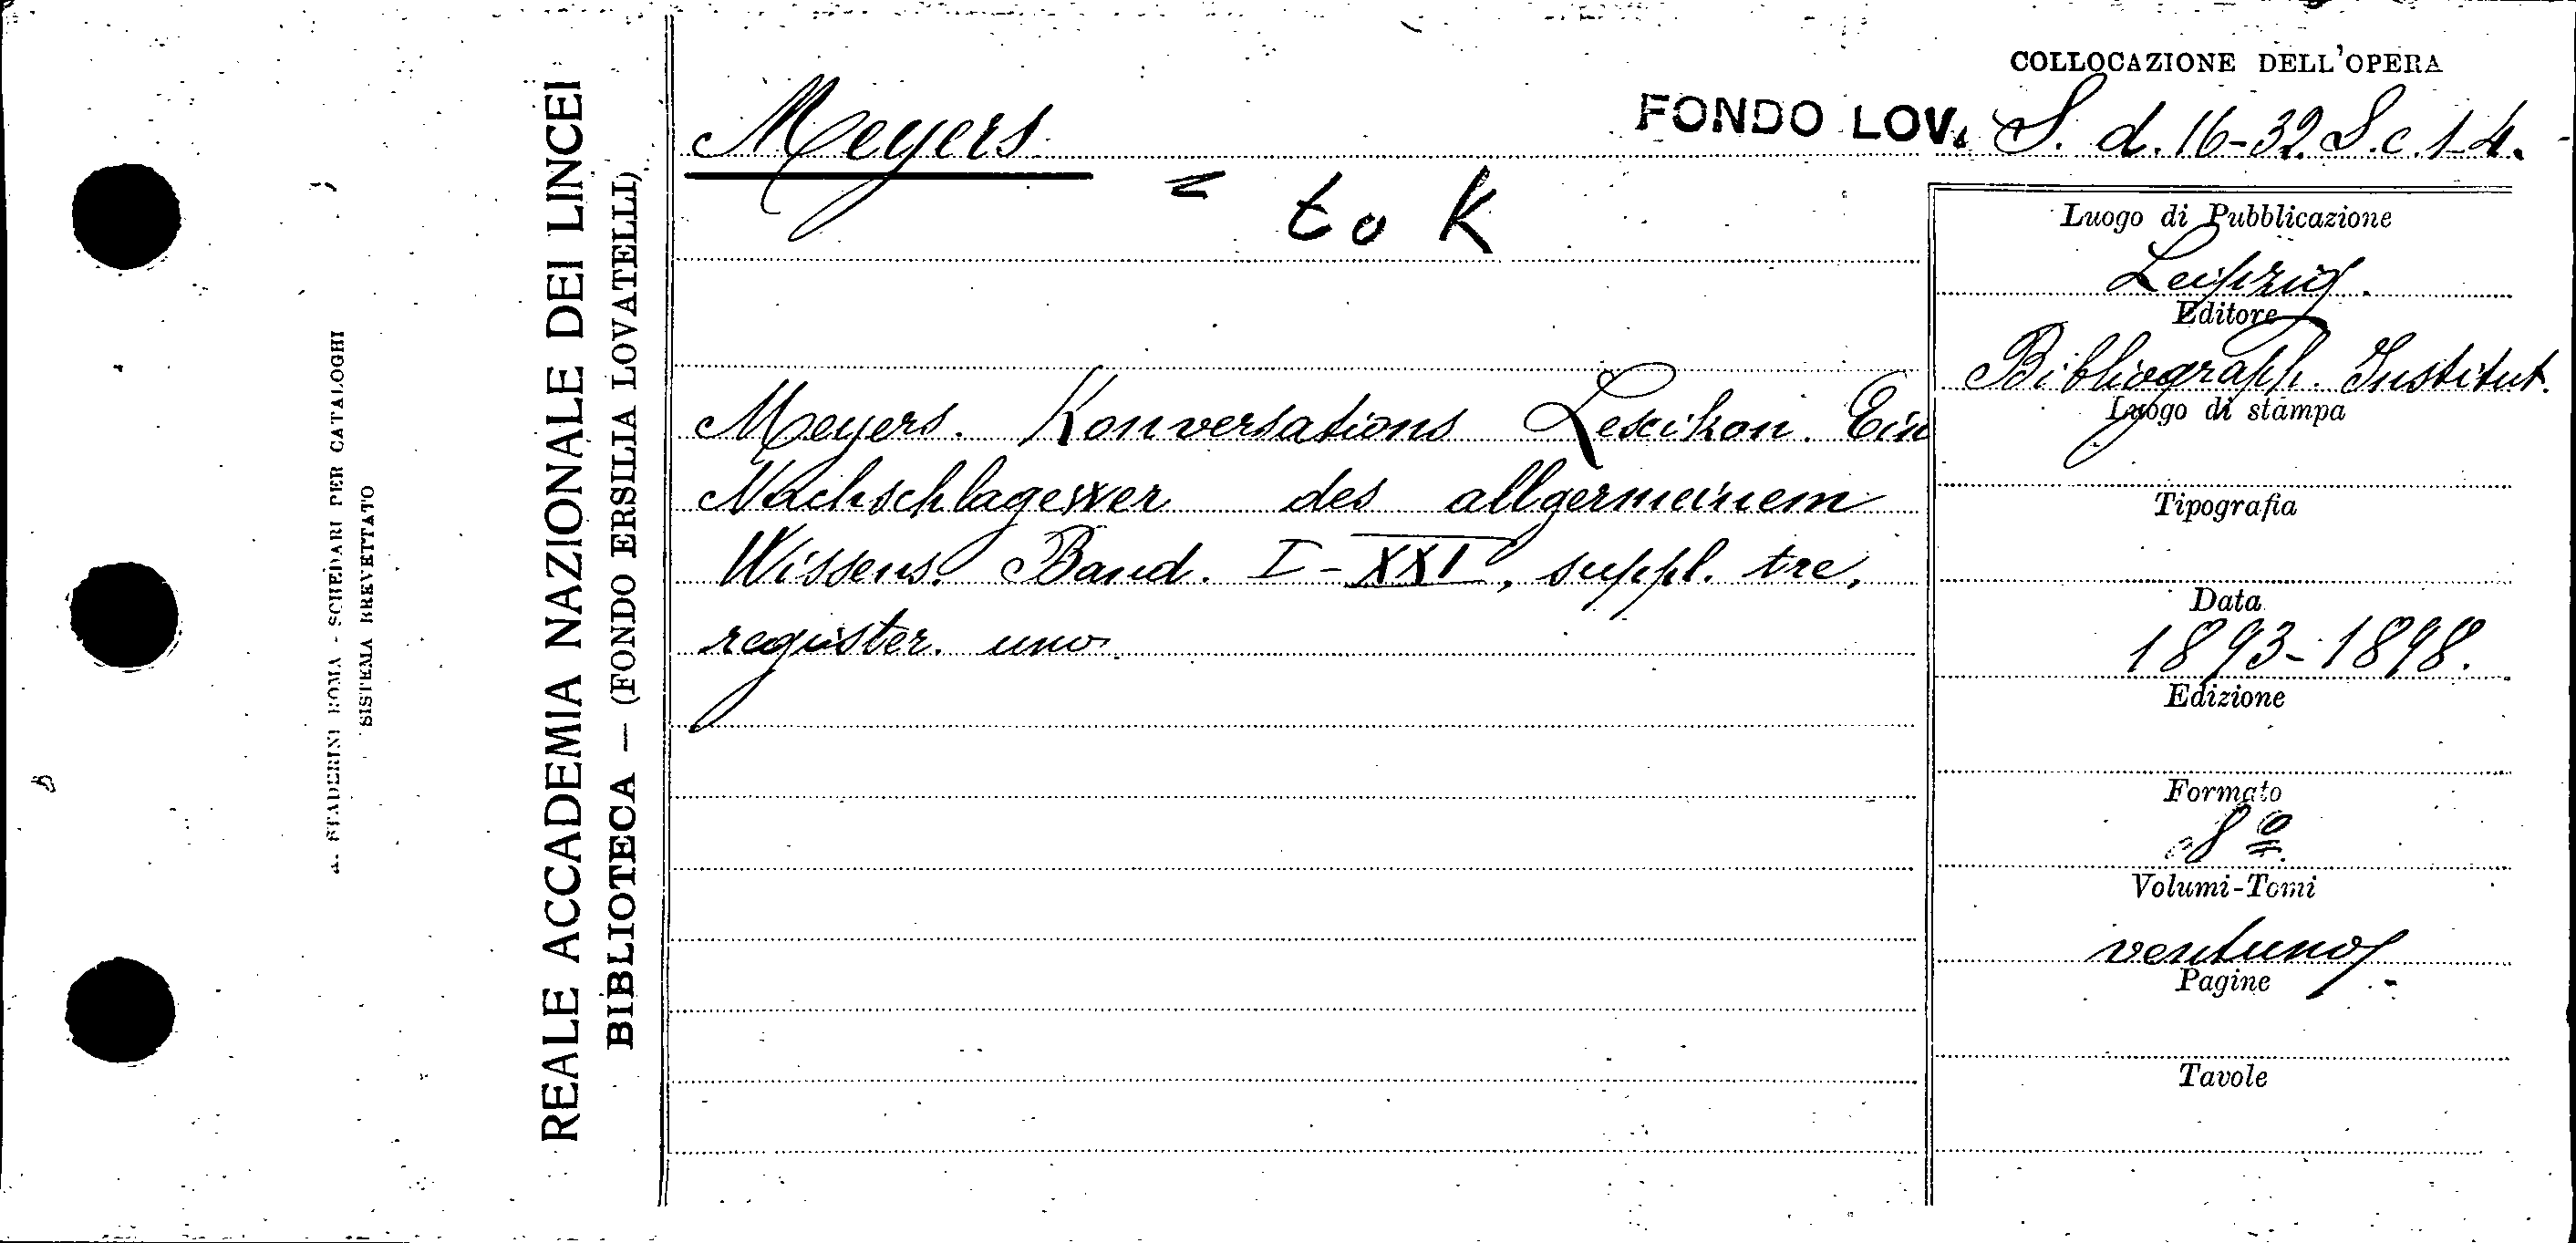 COLLOCAZIONE DELL'OPERA
FONDO LOV. S. d. 16-32. S. c. 1-4.
Meyers
= to K
Meyers. Konversations Lexikon. Ein
Nachschlagewer des allgermeinem
Wissens. Band. I - XXI, suppl. tre,
register. uno
Luogo di Pubblicazione
Leipzig.
Editore
Bibliograph. Institut.
Luogo di stampa
Tipografia
Data
1893-1898.
Edizione
Formato
8º
Volumi-Tomi
ventuno
Pagine
Tavole
REALE ACCADEMIA NAZIONALE DEI LINCEI
BIBLIOTECA — (FONDO ERSILIA LOVATELLI)
A. STADERINI ROMA - SCHEDARI PER CATALOGHI
SISTEMA BREVETTATO